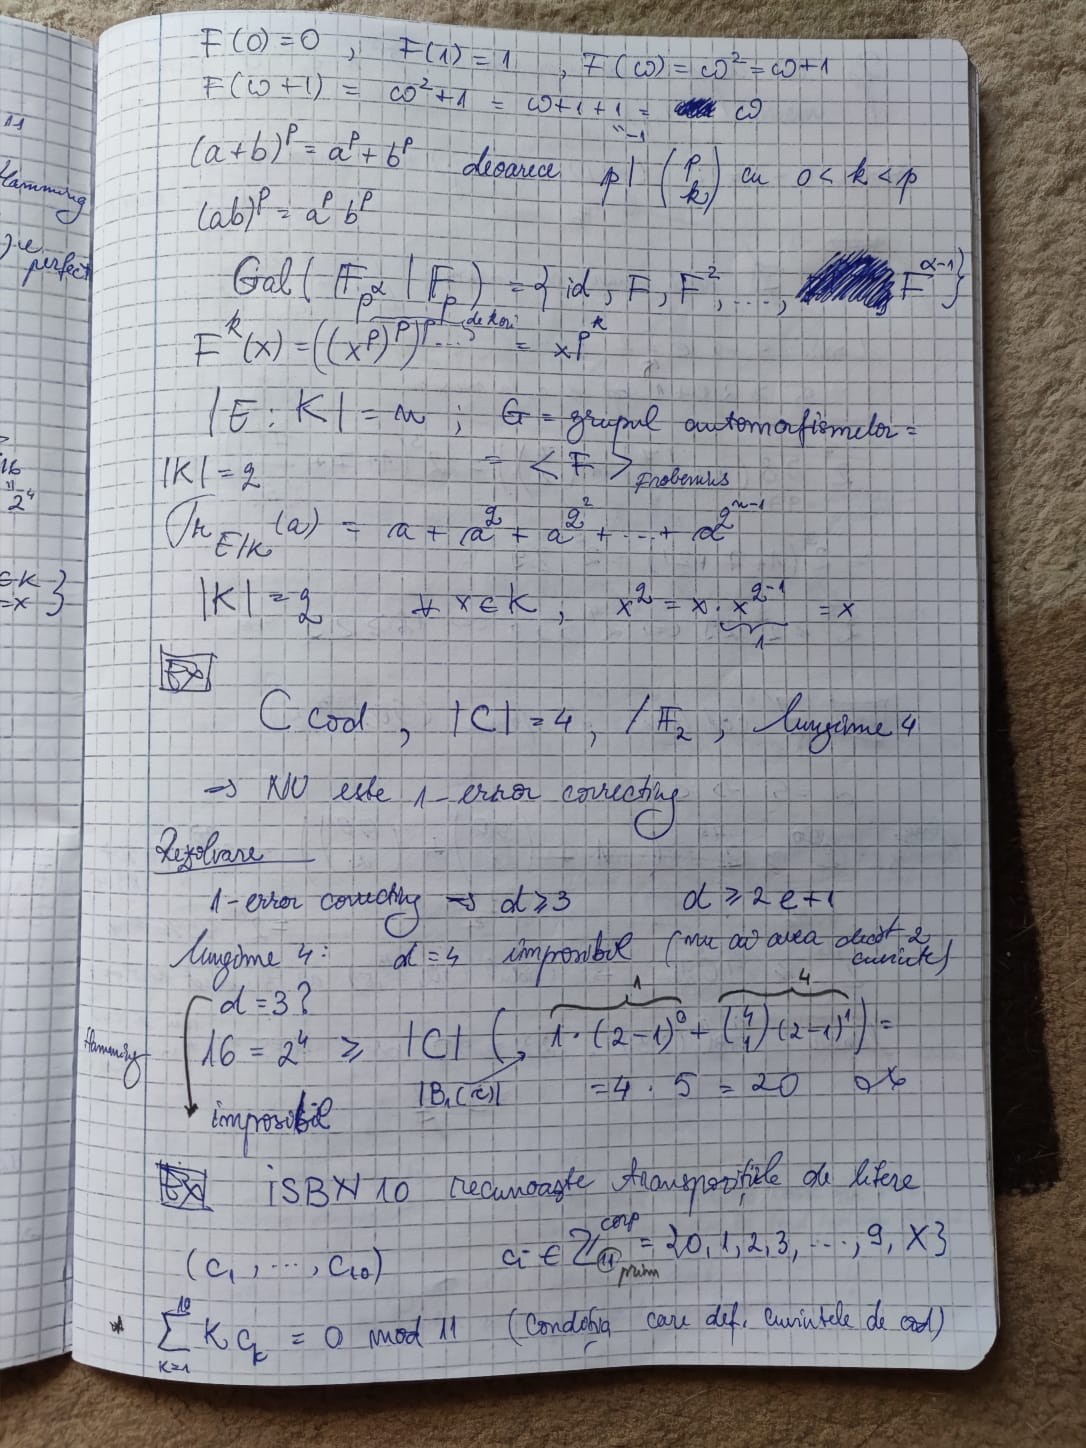 F(0) = 0 , F(1) = 1 , F(ω) = ω² = ω+1
F(ω+1) = ω²+1 = ω+1+1 = ω
"-1
(a+b)^p = a^p + b^p deoarece p | (p k) cu 0 < k < p
(ab)^p = a^p b^p
Gal( F_{p^α} | F_p ) = { id , F , F² , ..., F^{α-1} }
F^k(x) = ((x^p)^p)^p ... = x^{p^k}
de k ori
|E : K| = n ; G = grupul automorfismelor =
|K| = q = < F > Frobenius
Tr_{E/K}(a) = a + a^q + a^{q²} + ... + a^{q^{n-1}}
|K| = q ∀ x ∈ K , x^q = x · x^{q-1} = x
1
Ex
C cod , |C| = 4 , / F₂ ; lungime 4
⇒ NU este 1-error correcting
Rezolvare
1-error correcting ⇒ d ≥ 3 d ≥ 2e+1
lungime 4: d = 4 imposibil (nu ar avea decât 2 cuvinte)
d = 3 ?
1 4
Hamming 16 = 2⁴ ≥ |C| ( 1·(2-1)⁰ + (4 1)(2-1)¹ ) =
|B₁(c)| = 4 · 5 = 20
imposibil
Ex ISBN 10 recunoaște transpozițiile de litere
(c₁, ..., c₁₀) ci ∈ Z₁₁ = {0, 1, 2, 3, ..., 9, X}
corp
prim
* Σ_{k=1}^{10} K c_k = 0 mod 11 (Condiția care def. cuvintele de cod)
11
Hamming
perfect
16
"
2⁴
∈ K
= x }